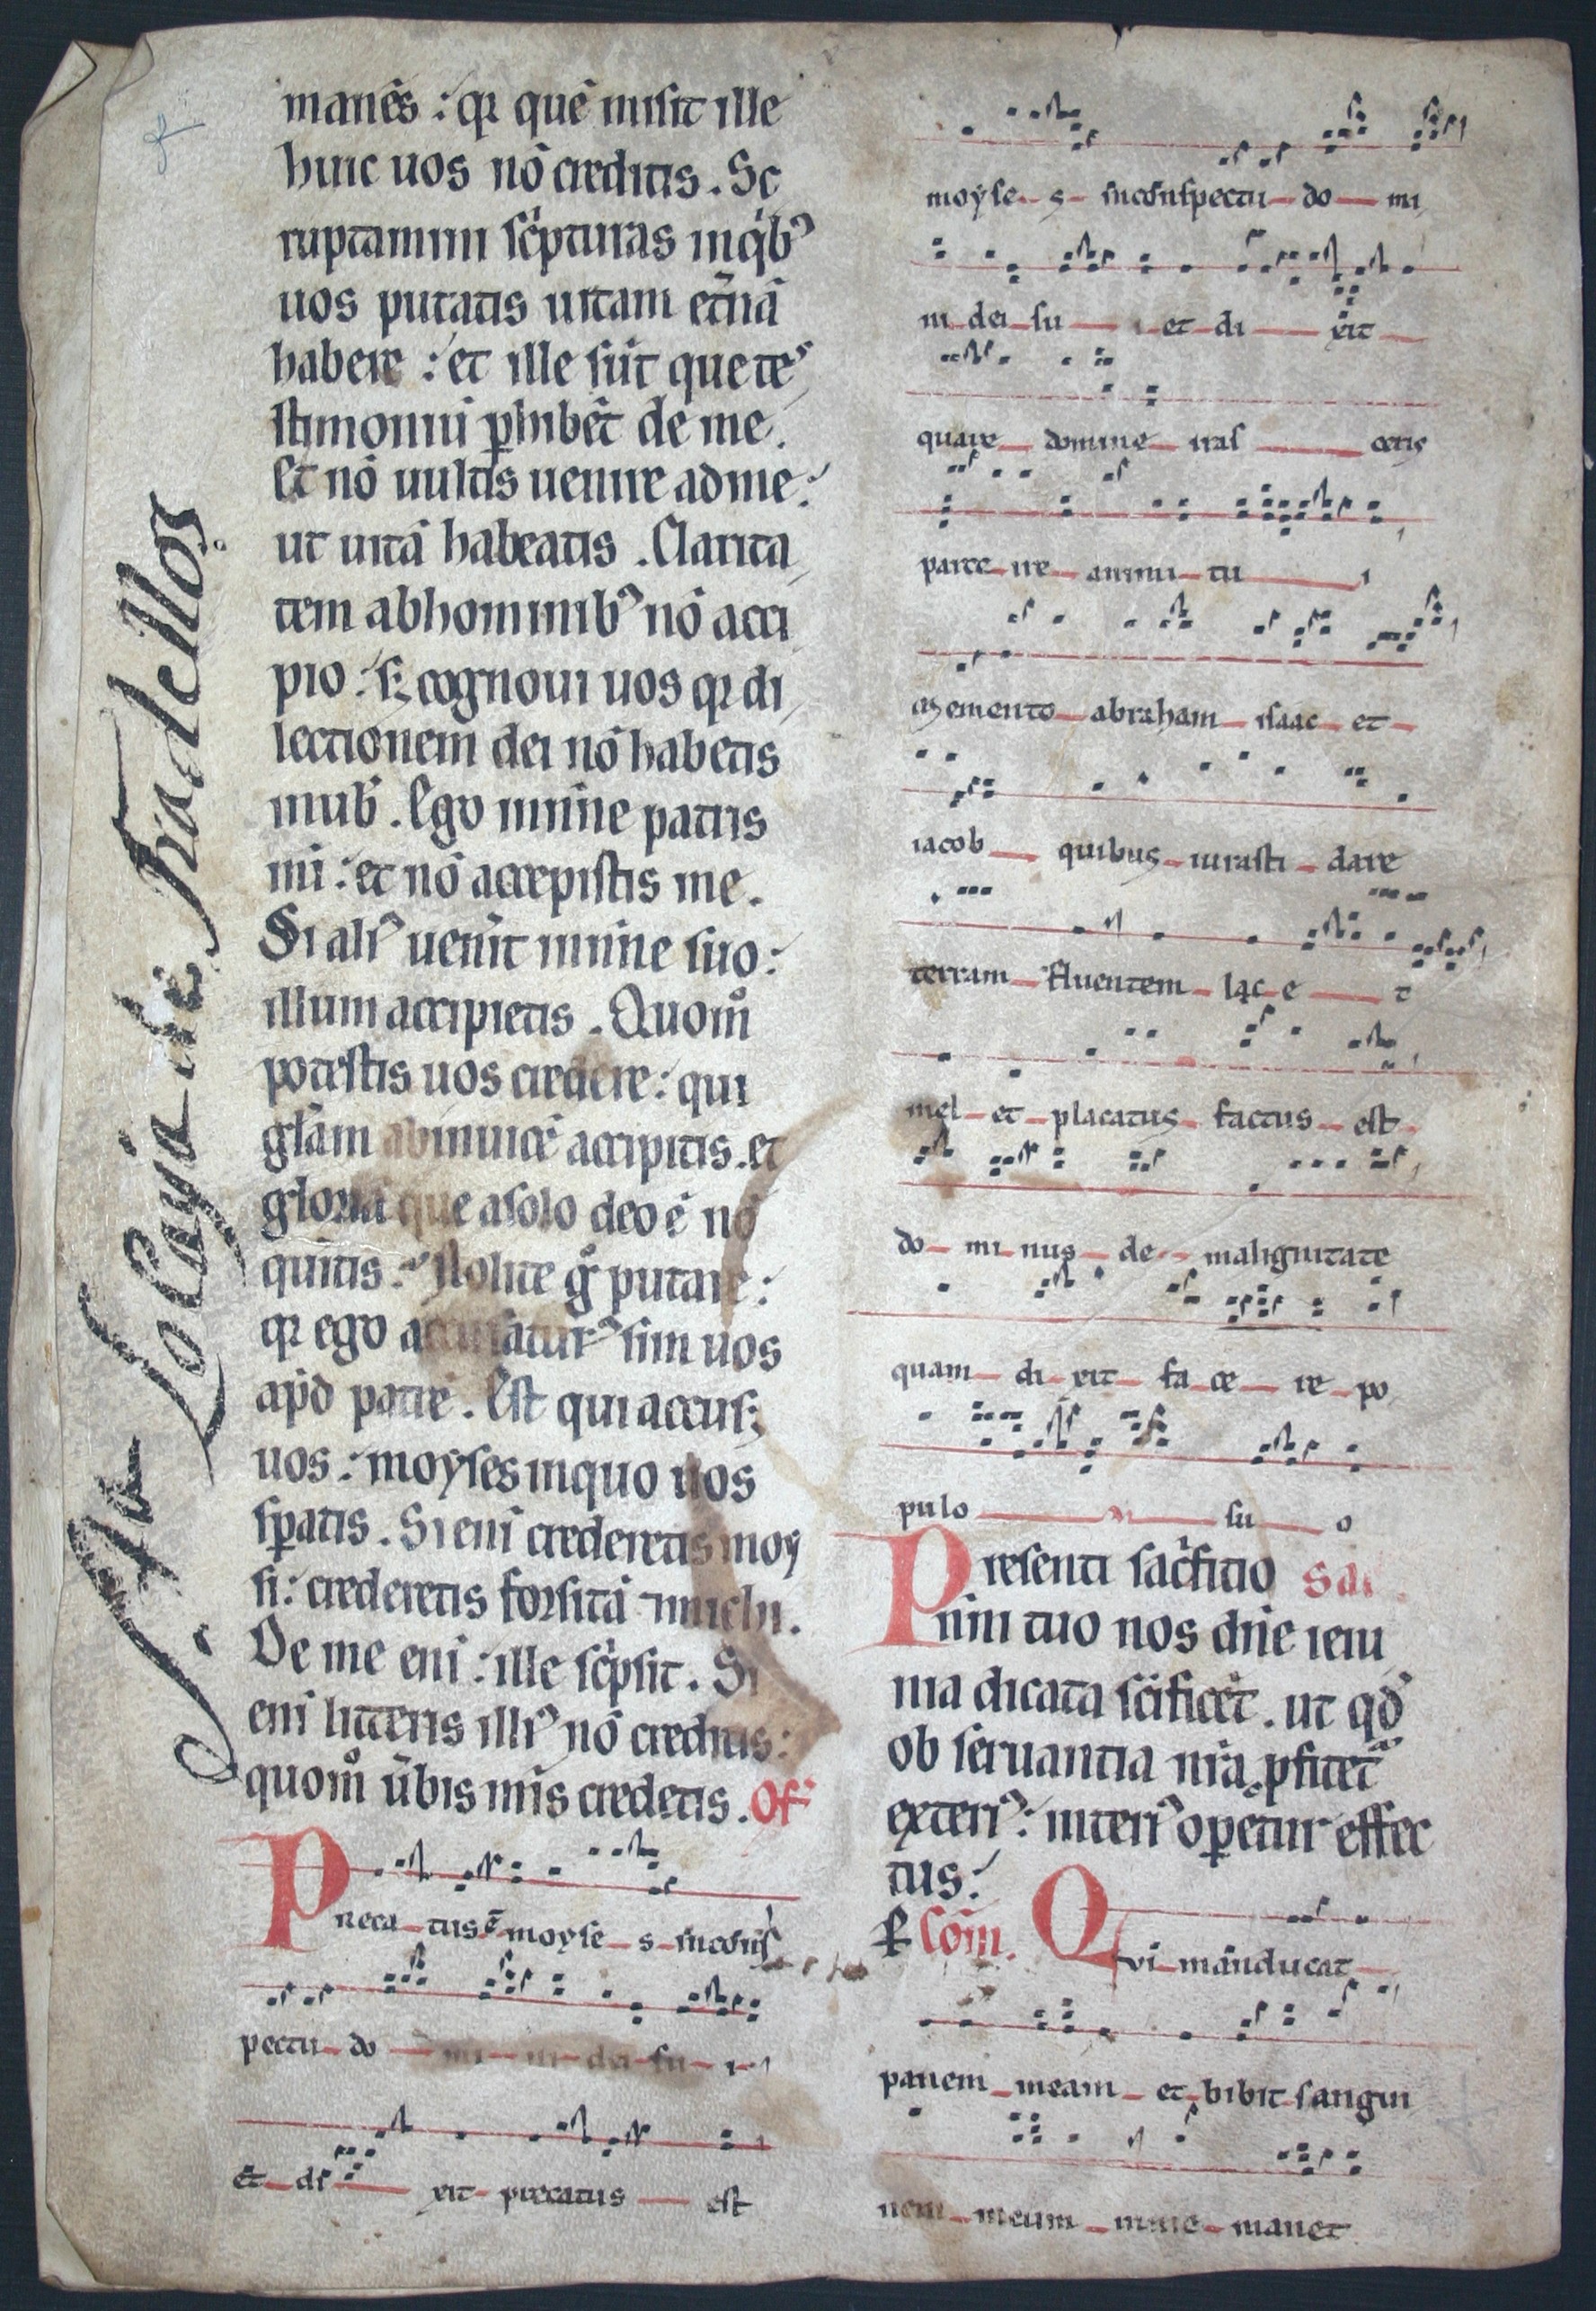 manēs : qr quē misit ille
huic uos nō creditis . Sc
ruptamini sc̄pturas inqͥbꝰ
uos putatis uitam et̄nā
habere : et ille sūt que te
stimoniū ꝑhibēt de me .
Et nō uultis uenire ad me :
ut uitā habeatis . Clarita
tem abhominibꝰ nō acci
pio : sꝫ cognoui uos qr di
lectionem dei nō habetis
inuob̄ . Ego in nn̄e patris
mī : et nō accepistis me .
Si aliꝰ uen̄it in nn̄e suo :
illum accipietis . Quom̊
potestis uos credere : qui
gl̄am abinuicē accipitis . et
gloriā que asolo deo ē nō
queritis . Nolite g̊ putare :
qr ego accusaturꝰ sim uos
apd̄ patrē . Est qui accusꝫ
uos : moyses inquo uos
sꝑatis . Si enī crederetis moy
si : crederetis forsitā ⁊ michi .
De me enī : ille sc̄psit . Si
enī litteris illiꝰ nō creditis :
quom̊ ūbis mīs credetis . Of̄
Preca tus ē moyse s incons̄
pectu do mi ni dei su i
et di xit precatus est
moyse s inconspectu do mi
ni dei su i et di xit
quare domine iras ceris
parce ire anime tu
memento abraham isaac et
iacob quibus iurasti dare
terram fluentem lac e t
mel et placatus factus est
do mi nus de malignitate
quam di xit fa ce re po
pulo su o
Presenti sac̄ficio Sa
nim tuo nos dn̄e ieiu
nia dicata sc̄ificēt . ut qd̄
ob seruantia nr̄a ꝓfitet᷑
exteriꝰ : interiꝰ oꝑetur effec
tus :
Com̄ . Qvi manducat
panem meam et bibit sangui
nem meum in me manet